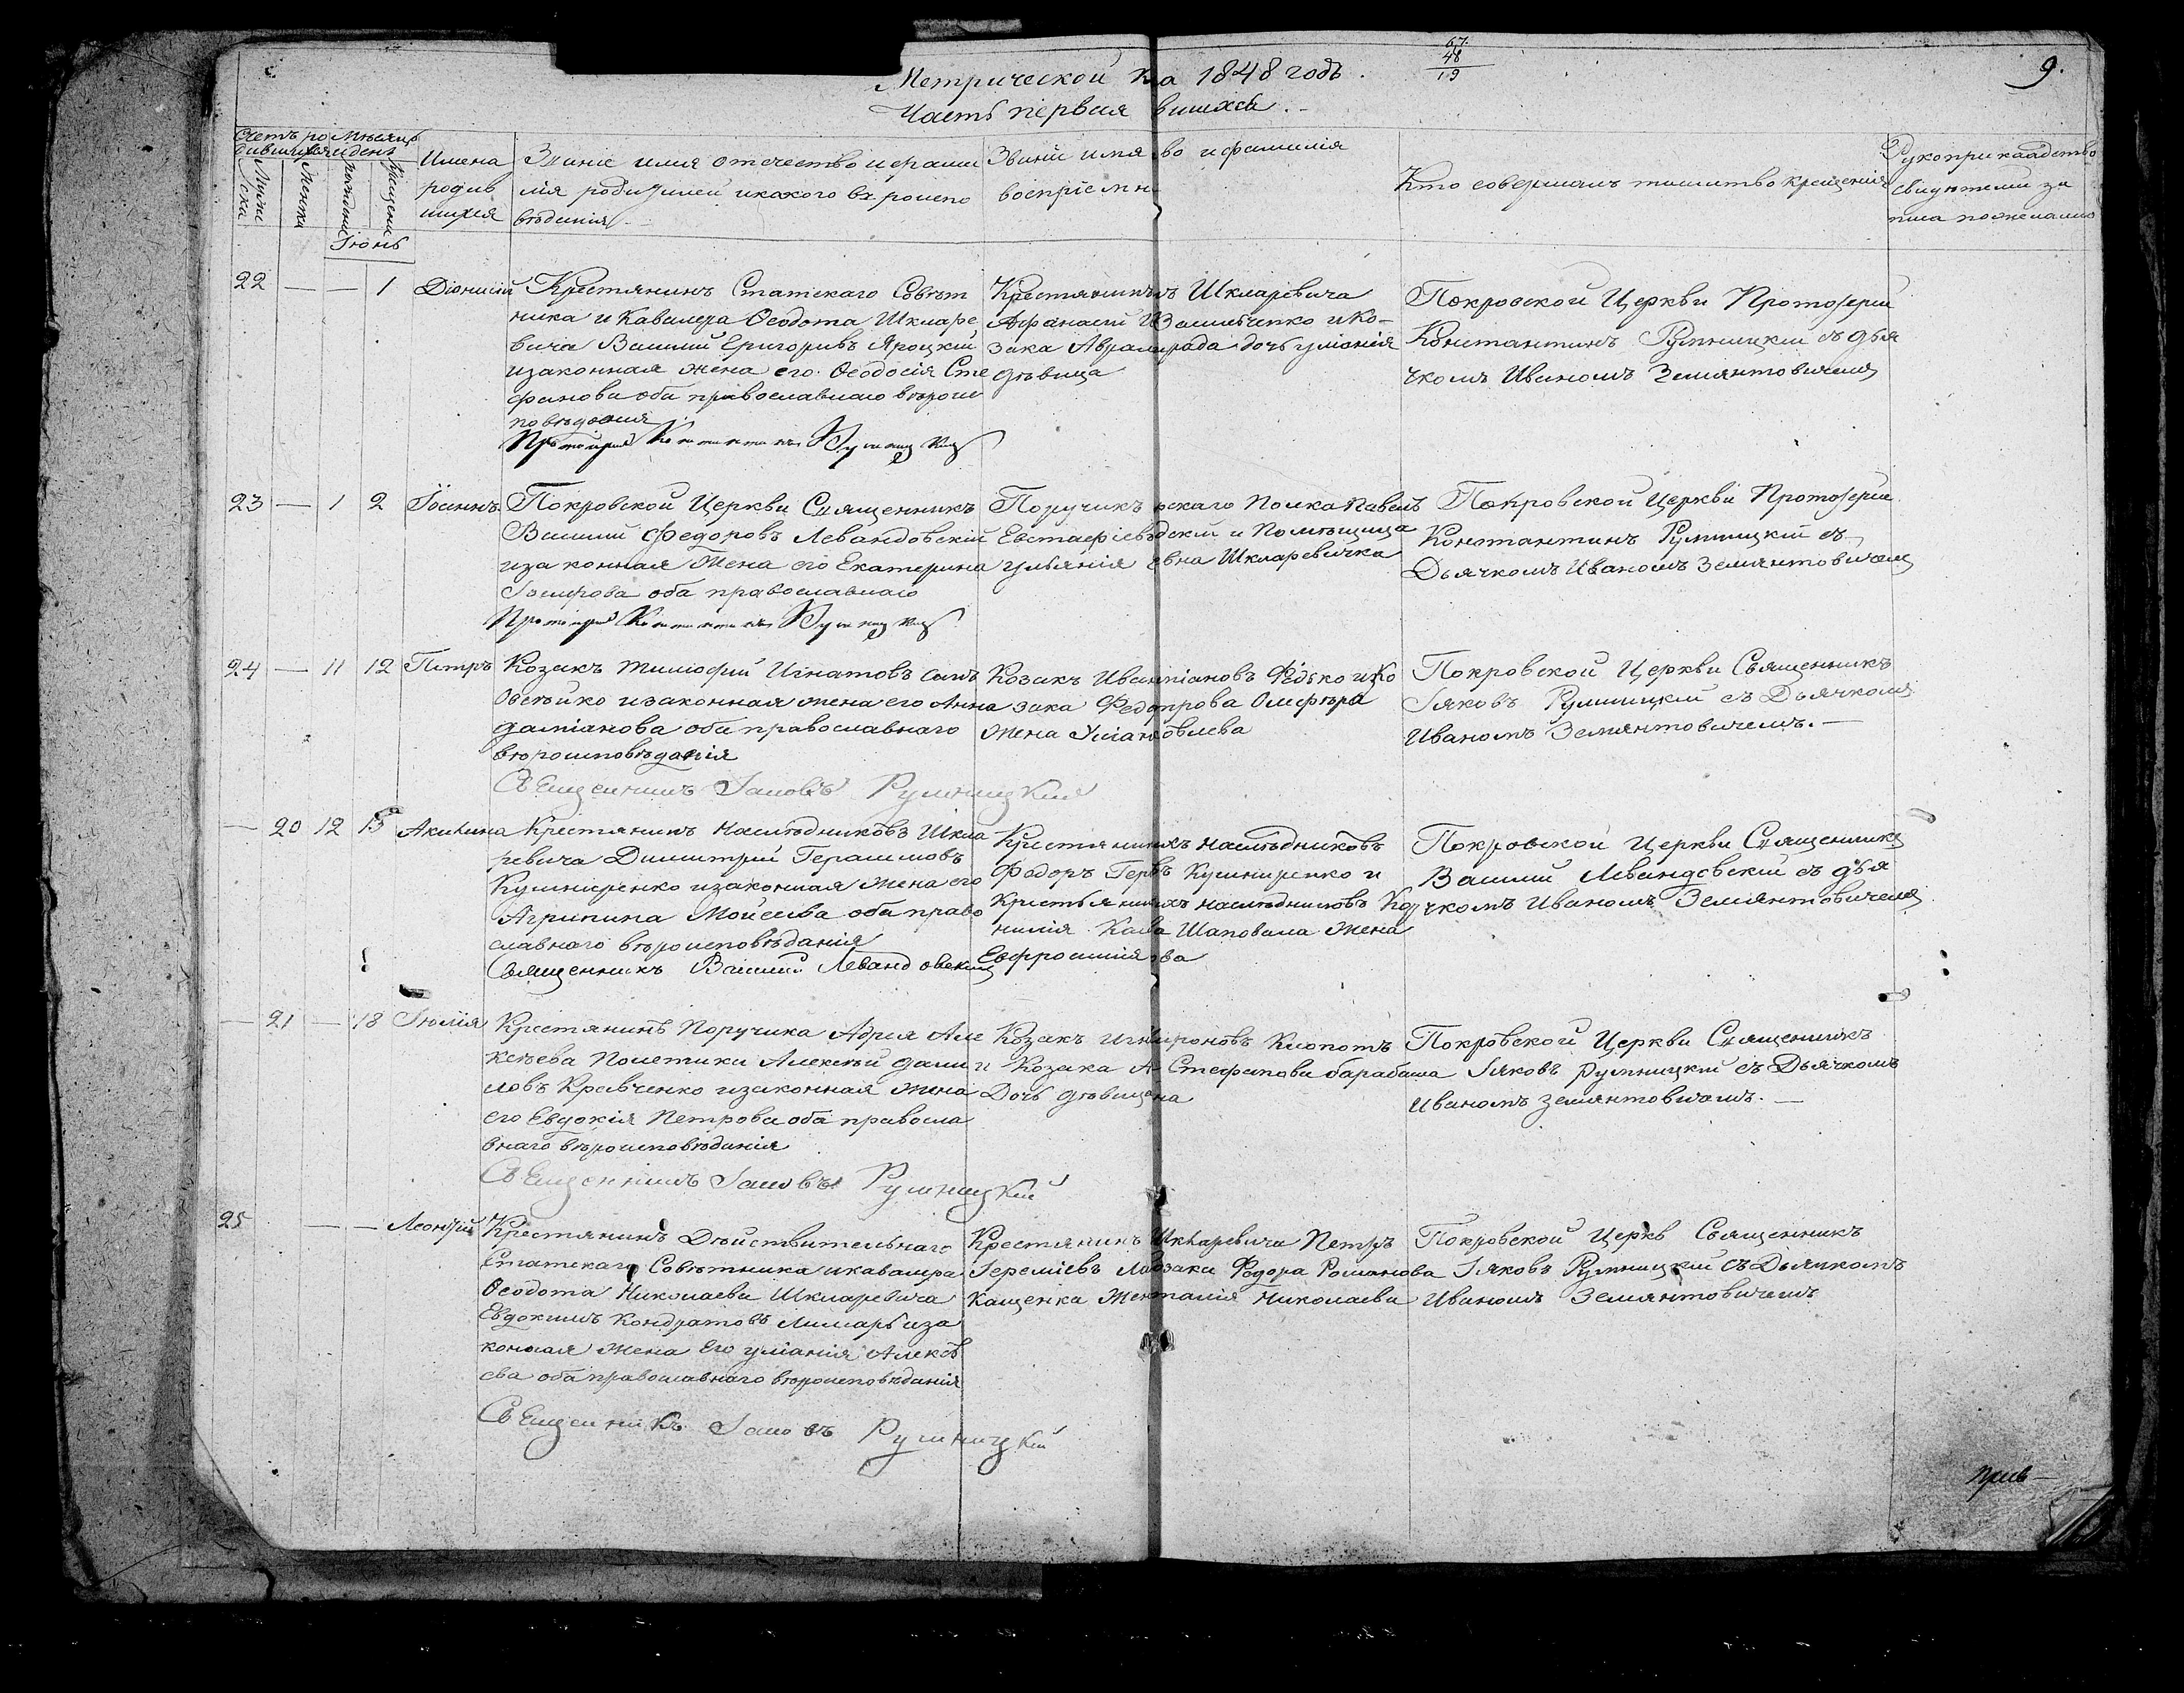 67.
48
19
9.
Метрической на 1848 годъ.
Часть первая вшихся.
Счетъ ро
дившихся
Мѣсяцъ
и день
Мужеска
Женска
рожденія
крещенія
Имена
родив
шихся
Званіе имя отечество и фами
лія родителей и какого вѣроиспо
вѣданія
Званіе имя во и фамилія
воспріемн
Кто совершалъ таинство крещенія
Рукоприкладство
свидѣтелей за
писи по желанію
Іюнь
22 — — 1 Діонисій
Крестянинъ Статскаго Совѣт
ника и Кавалера Ѳеодота Шкляре
вича Василій Григоривъ Яроцкій
и законная жена его Ѳеодосія Сте
фанова оба православнаго вѣроис
повѣданія
Протоіерей Константинъ Румницкій
Крестянинъ Шкляревича
Афанасій Василченко и Ко-
зака дочь Уліянія
дѣвица
Покровской Церкви Протоіерей
Константинъ Румницкій съ дья
чкомъ Иваномъ Земянтовичемъ
23 — 1 2 Іоаннъ
Покровской Церкви Священникъ
Василій Федоровъ Левандовскій
и законная Жена его Екатерина
Іосифова оба православнаго
Протоіерей Константинъ Румницкій
Поручикъ скаго Полка Павелъ
Евстафіев дскій и Помѣщица
Ульянія евна Шкляревичка
Покровской Церкви Протоіерей
Константинъ Румницкій съ
Дьячкомъ Иваномъ Земянтовичемъ
24 — 11 12 Петръ
Козакъ Тимофій Игнатовъ
Овсѣйко и законная жена его Анна
Даміанова оба православнаго
вѣроисповѣданія
Священникъ Іаковъ Румницкій
Козакъ Иван піановъ Федько и Ко
зака Федо трова Олефѣра
жена Уліан овлева
Покровской Церкви Священникъ
Іяковъ Румницкій съ Дьячкомъ
Иваномъ Земянтовичемъ. —
— 20 12 13 Акилина
Крестянинъ наслѣдниковъ Шкля
ревича Димитрій Герасимовъ
Кушниренко и законная жена его
Агрипина Мойсеева оба право
славнаго вѣроисповѣданія
Священникъ Василій Левандовскій
Крестянинъ хъ наслѣдниковъ
Федоръ Гер въ Кушниренко и
Крестьянин ихъ наслѣдниковъ Кор
нилія Шаповала жена
Евфросинія ова
Покровской Церкви Священникъ
Василій Левандовскій съ дья
чкомъ Иваномъ Земянтовичемъ
— 21 — 18 Іюлія
Крестянинъ Поручика Адрея Але
ксѣева Полетики Алексѣй Дани
ловъ Кравченко и законная жена
его Евдокія Петрова оба правосла
внаго вѣроисповѣданія
Священникъ Іаковъ Румницкій
Козакъ Игн роновъ Клопотъ
и Козака А Стефанова барабаша
Дочь дѣвица на
Покровской Церкви Священникъ
Іяковъ Румницкій съ Дьячкомъ
Иваномъ Земянтовичомъ. —
25 — — Леонтій
Крестянинъ Дѣйствительнаго
Статскаго Совѣтника и кавалера
Ѳеодота Николаева Шкляревича
Евдокимъ Кондратовъ Лимарь и за
конная жена Его Уліанія Алексѣ
ева оба православнаго вѣроисповѣданія
Священникъ Іаковъ Румницкій
Крестянинъ Шкляревича Петръ
Іереміевъ озака Федора Романова
Кащенка Жен талія Николаева
Покровской Церкв Священникъ
Іяковъ Румницкій съ Дьячкомъ
Иваномъ Земянтовичемъ